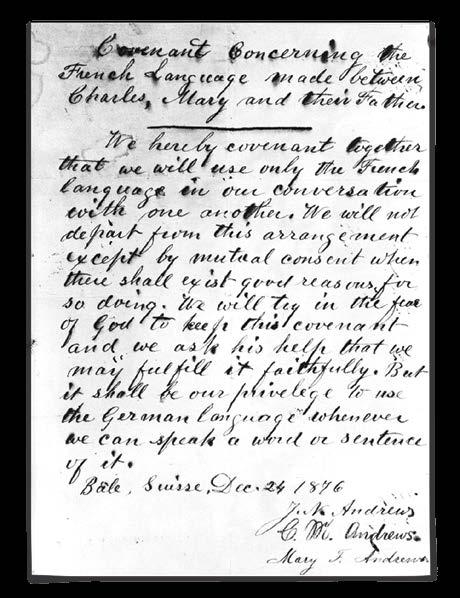 Covenant Concerning the
French Language made between
Charles, Mary and their Father.
We hereby covenant together
that we will use only the French
language in our conversation
with one another. We will not
depart from this arrangement
except by mutual consent when
there shall exist good reasons for
so doing. We will try in the fear
of God to keep this covenant
and we ask his help that we
may fulfill it faithfully. But
it shall be our privelege to use
the German language whenever
we can speak a word or sentence
of it.
Bâle, Suisse, Dec. 24 1876
J. N. Andrews
C. M. Andrews.
Mary F. Andrews.